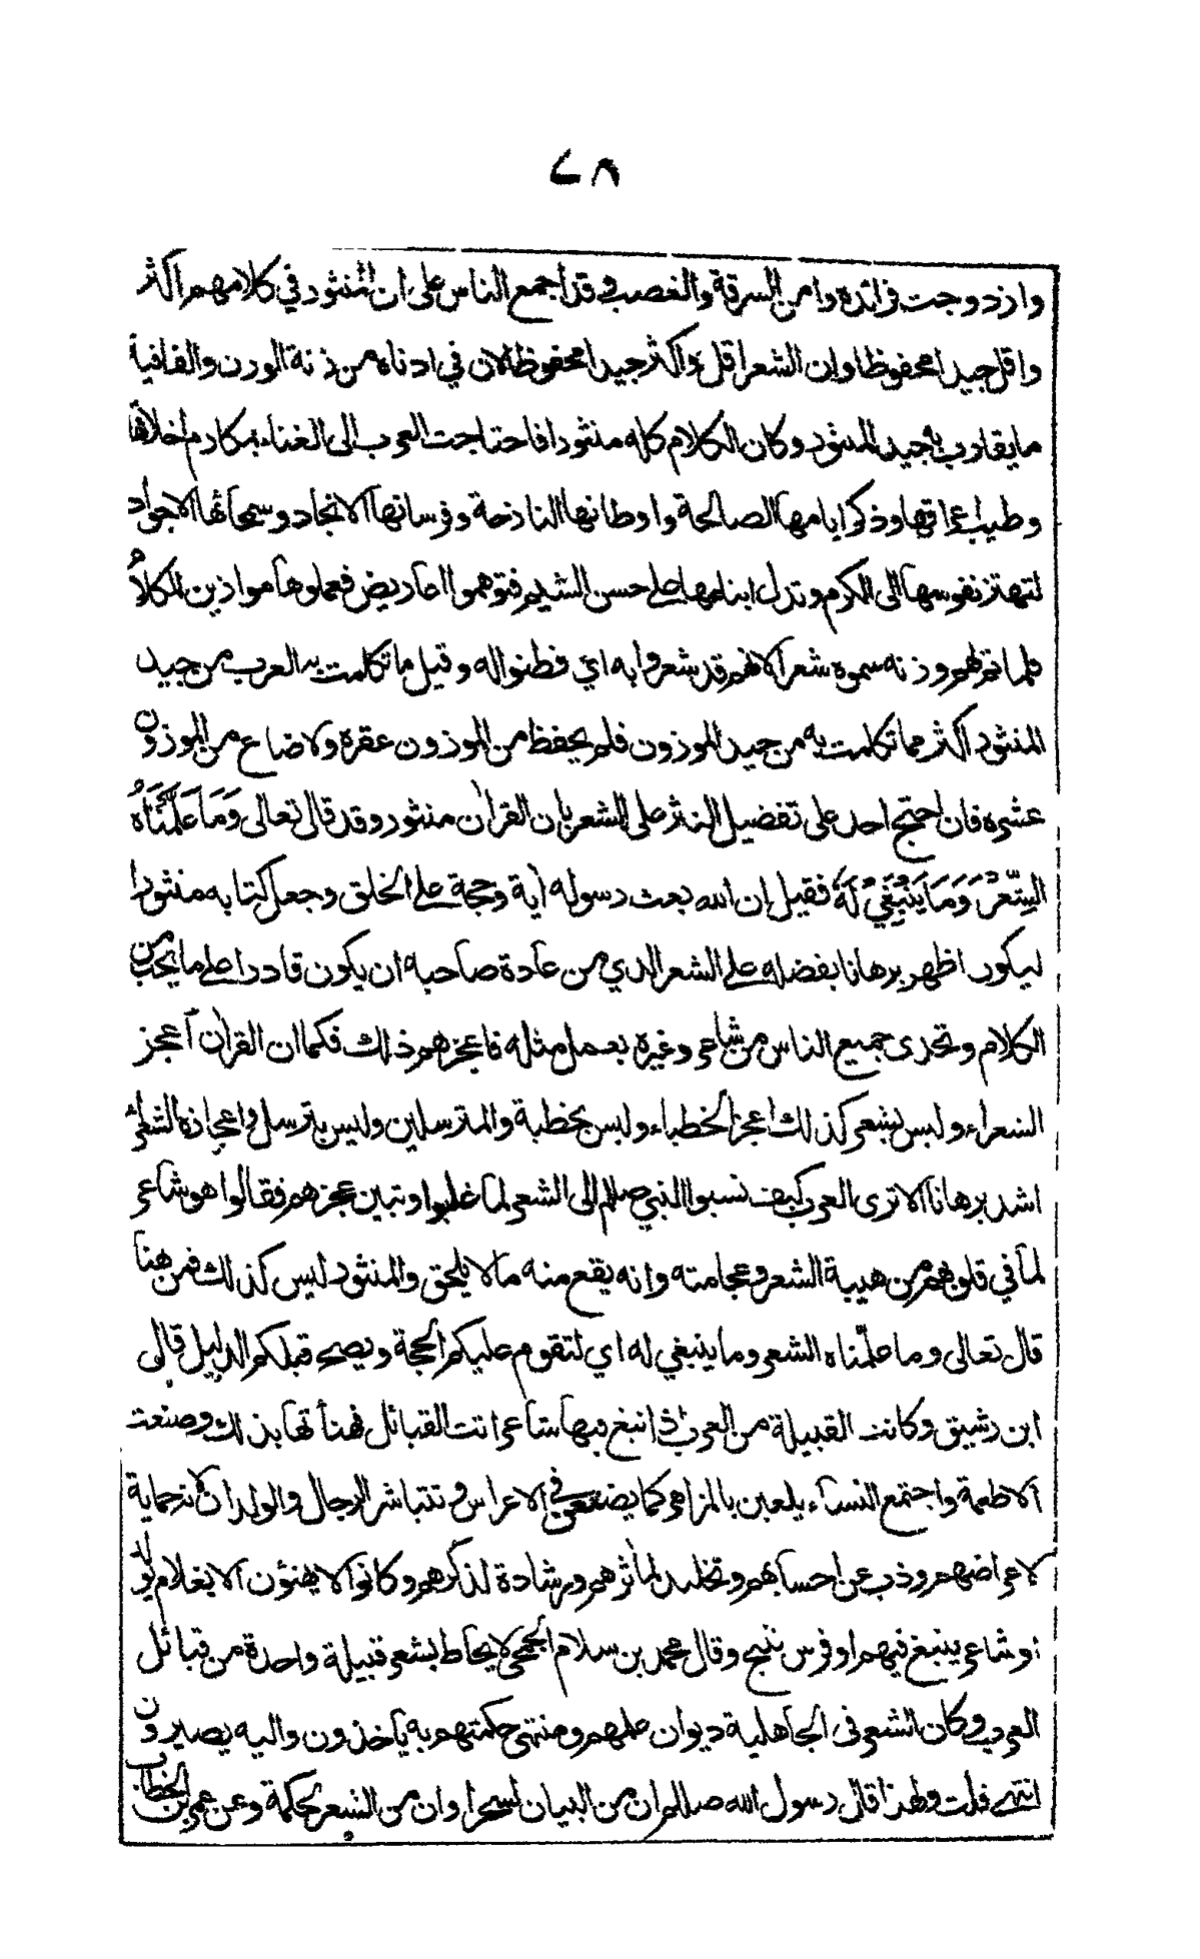 ٧٨
وازدوجت فرائده وامن السرقة والغصب وقد اجمع الناس على ان المنثور في كلامهم اكثر
واقل جيدا محفوظا وان الشعر اقل واكثر جيدا محفوظا لان في ادناه من زنة الوزن والقافية
ما يقارب به جيد المنثور وكان الكلام كله منثورا فاحتاجت العرب الى الغناء بمكارم اخلاقها
وطيب اعراقها وذكر ايامها الصالحة واوطانها النازحة وفرسانها الانجاد وسمحائها الاجواد
لتهتز نفوسها الى الكرم وتدل ابنائها على حسن الشيم فتوهموا اعاريض فعملوها موازين الكلام
فلما تم لهم وزنه سموه شعرا لانهم قد شعروا به اي فطنوا له وقيل ما تكلمت به العرب من جيد
المنثور اكثر مما تكلمت به من جيد الموزون فلم يحفظ من الموزون عقره ولا ضاع من الموزون
عشره فان احتج احد على تفضيل النثر على الشعر بان القران منثور وقد قال تعالى وَمَا عَلَّمْنَاهُ
الشِّعْرَ وَمَا يَنْبَغِي لَهُ فقيل ان الله بعث رسوله آية وحجة على الخلق وجعل كتابه منثورا
ليكون اظهر برهانا بفضله على الشعر الذي من عادة صاحبه ان يكون قادرا على ما يحب من
الكلام وتحدى جميع الناس من شاعر وغيره بعمل مثله فاعجزهم ذلك فكما ان القران اعجز
الشعراء وليس بشعر كذلك اعجز الخطباء وليس بخطبة والمترسلين وليس بترسل واعجازه الشعراء
اشد برهانا الا ترى العرب كيف نسبوا النبي صللم الى الشعر لما غلبوا وتبين عجزهم فقالوا هو شاعر
لما في قلوبهم من هيبة الشعر وعجامته وانه يقع منه ما لا يلحق والمنثور ليس كذلك فمن هنا
قال تعالى وما علّمناه الشعر وما ينبغي له اي لتقوم عليكم الحجة ويصح قبلكم الدليل قال
ابن رشيق وكانت القبيلة من العرب اذا نبغ فيها شاعر اتت القبائل فهنأتها بذلك وصنعت
الاطعمة واجتمع النساء يلعبن بالمزاهر كما يصنعن في الاعراس وتتباشر الرجال والولدان لانه حماية
لاعراضهم وذب عن احسابهم وتخليد لمآثرهم واشادة لذكرهم وكانوا لا يهنئون الا بغلام يولد
او شاعر ينبغ فيهم او فرس تنتج وقال محمد بن سلام الجمحي لا يحاط بشعر قبيلة واحدة من قبائل
العرب وكان الشعر في الجاهلية ديوان علمهم ومنتهى حكمتهم به ياخذون واليه يصيرون
انتهى قلت ولهذا قال رسول الله صللم ان من البيان لسحرا وان من الشعر لحكمة وعن عمر بن الخطاب